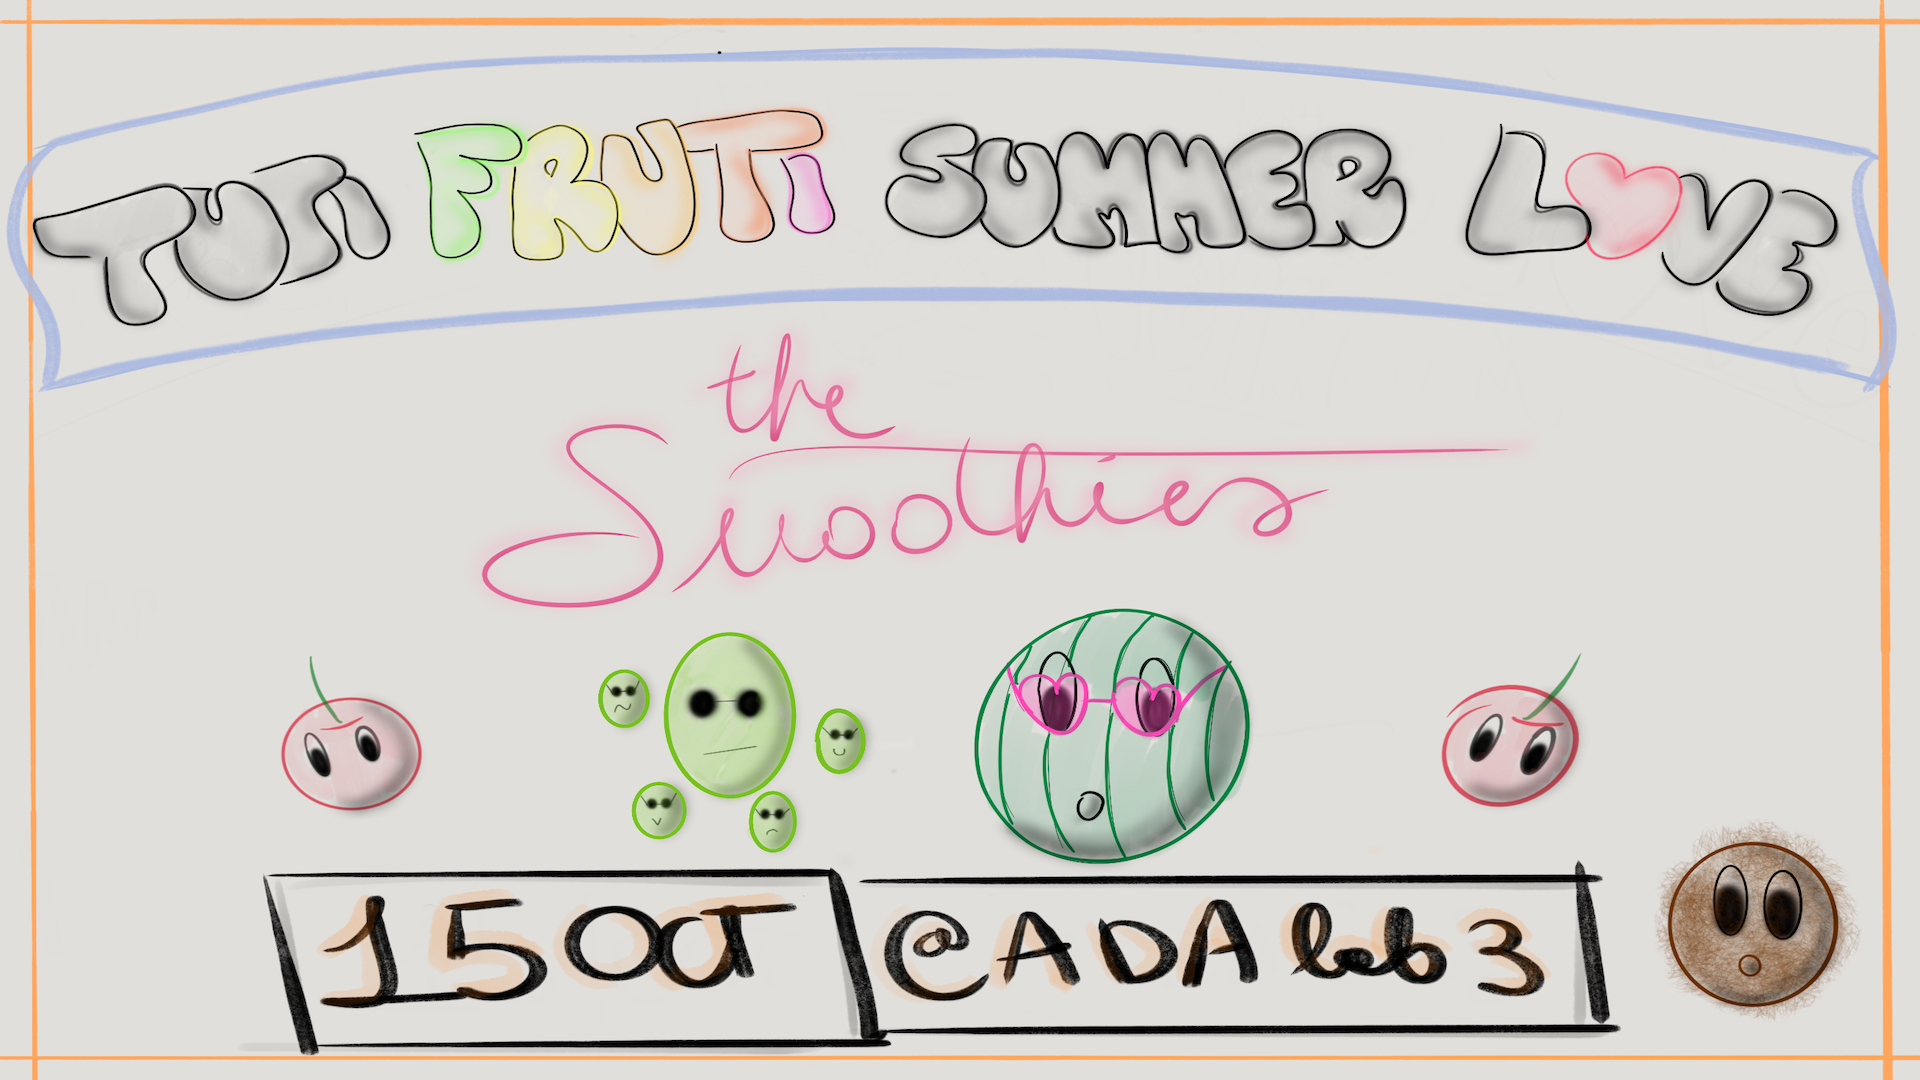 TUTTI FRUTTI SUMMER LOVE
the
Smoothies
15 OCT @ADA lab 3